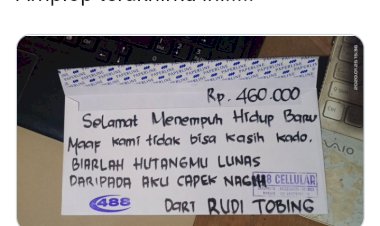 Rp. 460.000
Selamat Menempuh Hidup Baru
Maaf kami tidak bisa kasih kado.
BIARLAH HUTANGMU LUNAS
DARIPADA AKU CAPEK NAGIH
88 CELLULAR
486
DARI RUDI TOBING
VAIO